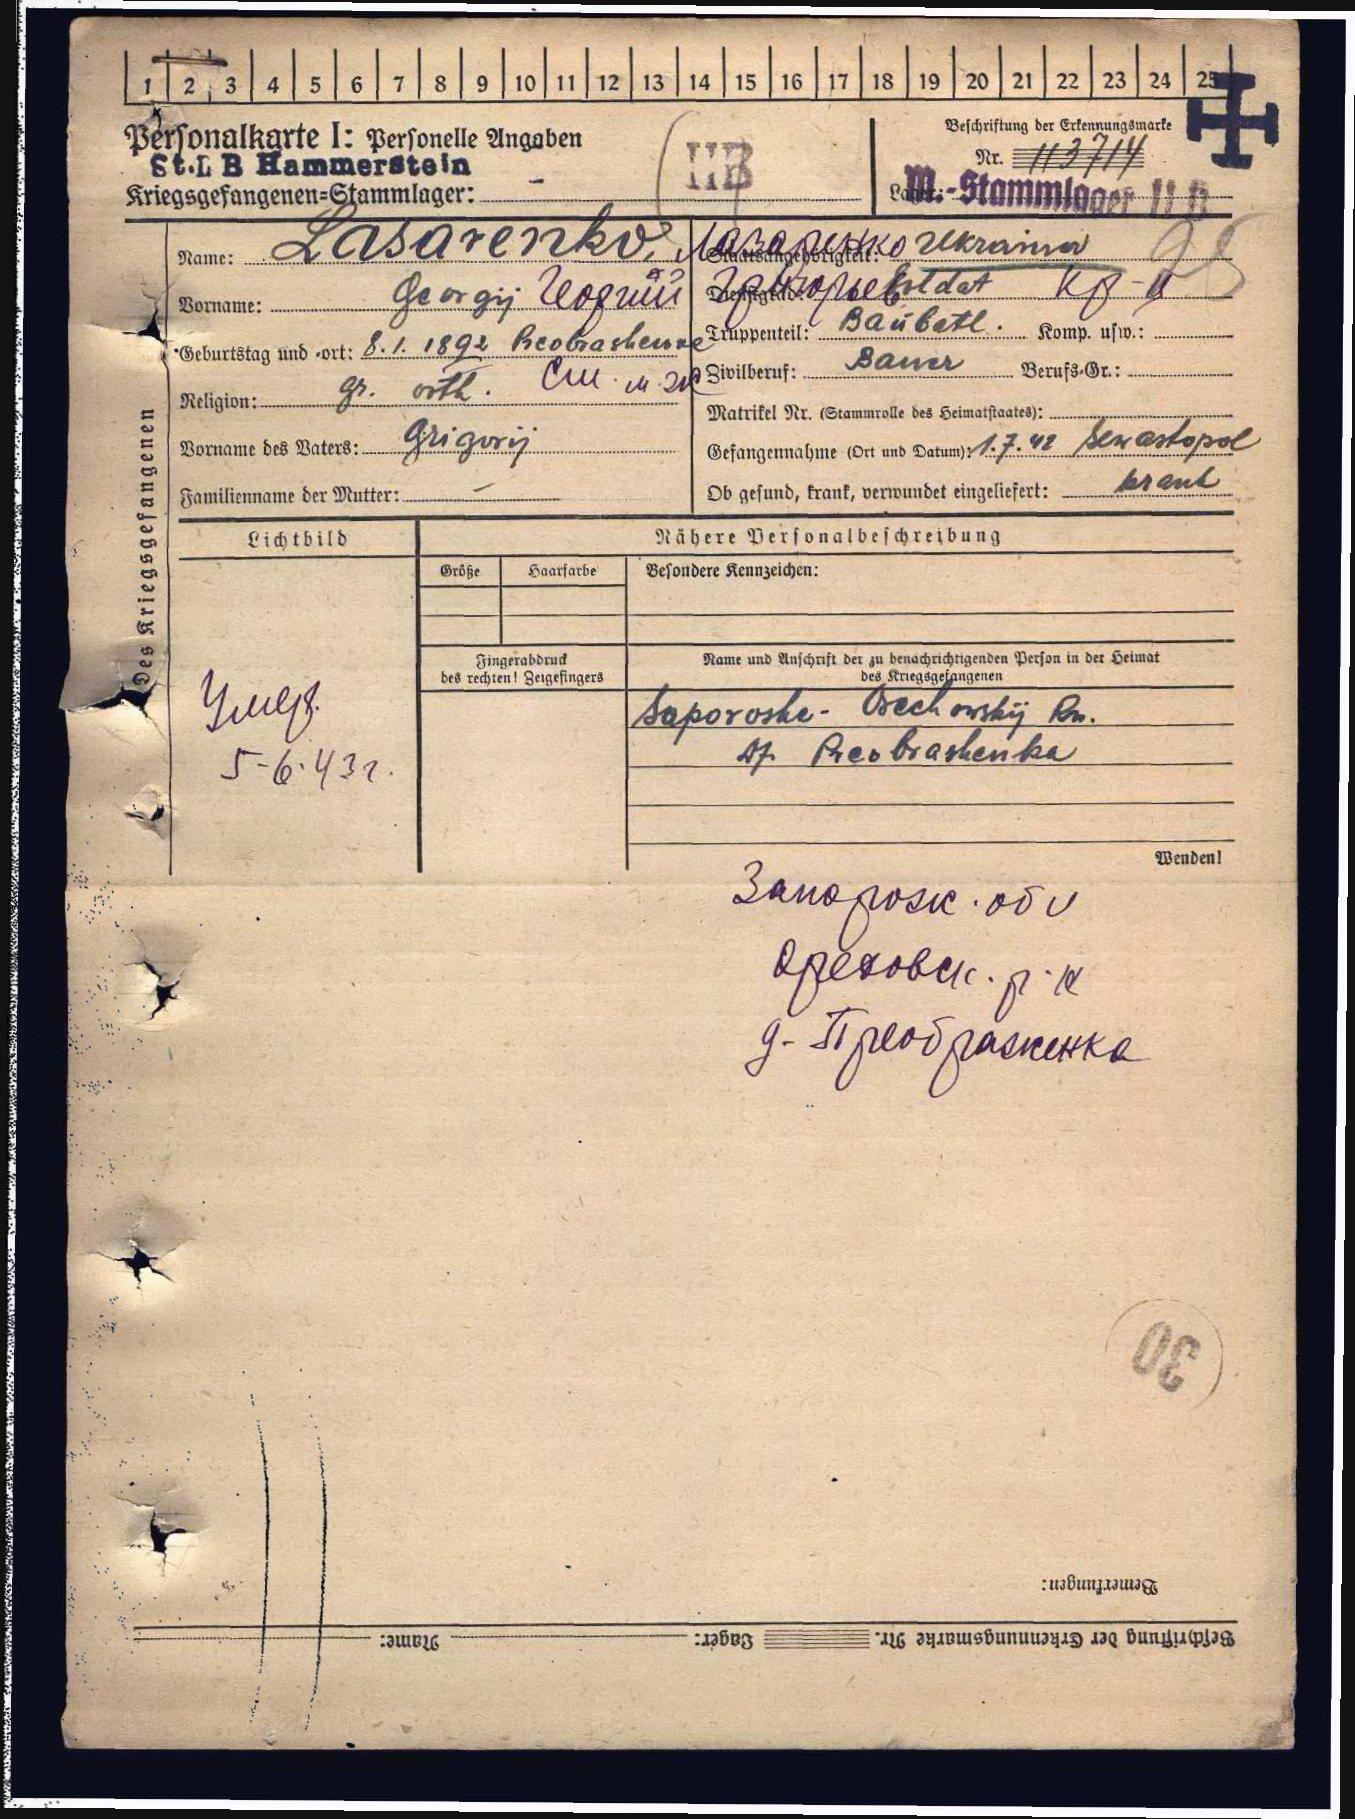 1 2 3 4 5 6 7 8 9 10 11 12 13 14 15 16 17 18 19 20 21 22 23 24 25
Personalkarte I: Personelle Angaben
St.L B Hammerstein
Kriegsgefangenen-Stammlager: –
II B
Beschriftung der Erkennungsmarke
Nr. 113714
Lager: M.-Stammlager II B
Des Kriegsgefangenen
Name: Lasarenko, Лазаренко
Vorname: Georgij Георгий Григорьев
Geburtstag und -ort: 8.1.1892 Preobrashenka
Religion: gr. orth.
Vorname des Vaters: Grigorij
Familienname der Mutter: –
Staatsangehörigkeit: Ukrainer
Dienstgrad: Soldat кр-ц
Truppenteil: Baubatl. Komp. usw.:
Zivilberuf: Bauer Berufs-Gr.:
Matrikel Nr. (Stammrolle des Heimatstaates):
Gefangennahme (Ort und Datum): 1.7.42 Sewastopol
Ob gesund, krank, verwundet eingeliefert: krank
Lichtbild
Nähere Personalbeschreibung
Größe Haarfarbe Besondere Kennzeichen:
Fingerabdruck
des rechten! Zeigefingers
Name und Anschrift der zu benachrichtigenden Person in der Heimat
des Kriegsgefangenen
Saporoshe- Orechowskij Rn.
Df. Preobrashenka
Умер.
5-6.43г.
Wenden!
Запорож. обл
Ореховск. р-н
д- Преображенка
30
Bemerkungen:
Beschriftung der Erkennungsmarke Nr. Lager: Name: